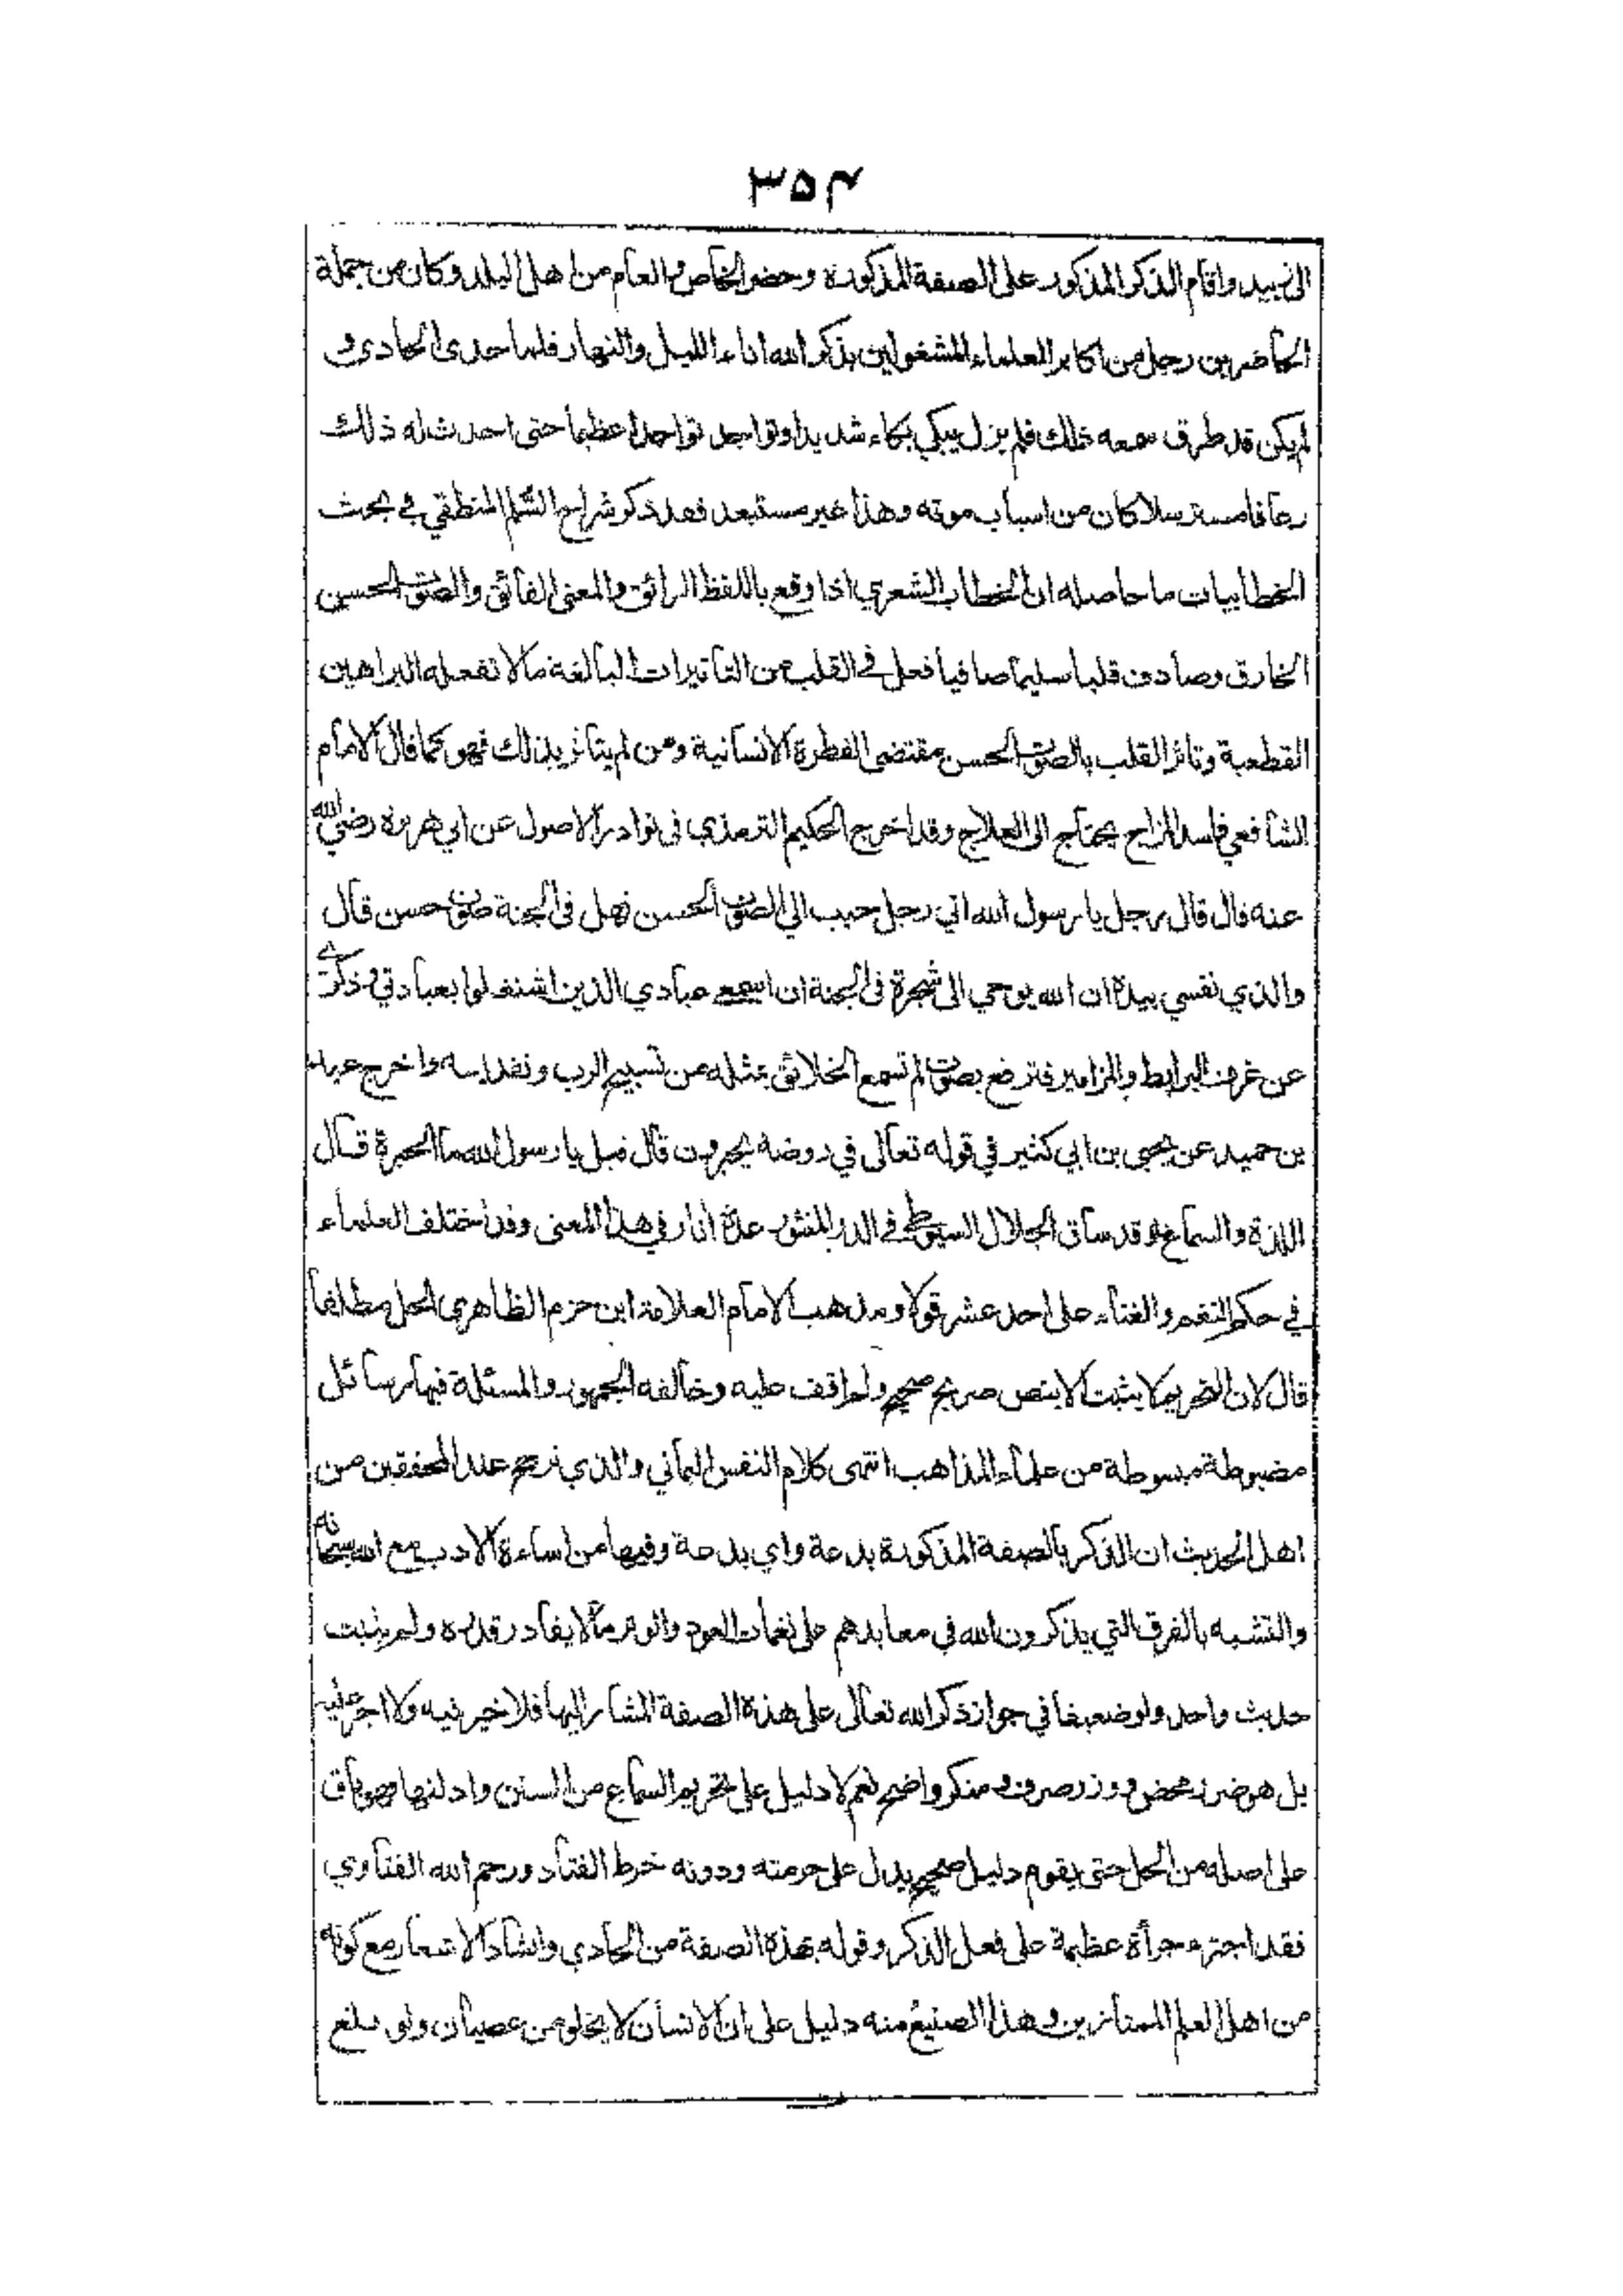 ٣٥٤
الى زبيد واقام الذكر المذكور على الصفة المذكورة وحضر الخاص والعام من اهل البلد وكان من جملة
الحاضرين رجل من اكابر العلماء المشغولين بذكر الله اناء الليل والنهار فلما حدى الحادي و
لم يكن قد طرق سمعه ذلك فلم يزل يبكي بكاء شديدا وتواجد تواجدا عظيما حتى احدث له ذلك
رعافا مسترسلا كان من اسباب موته وهذا غير مستبعد فقد ذكر شراح السلم المنطقي في بحث
الخطابيات ما حاصله ان الخطاب الشعري اذا وقع باللفظ الرائق والمعنى الفائق والصوت الحسن
الخارق وصادف قلبا سليما صافيا فعل في القلب من التاثيرات البالغة ما لا تفعله البراهين
القطعية وتاثر القلب بالصوت الحسن مقتضى الفطرة الانسانية ومن لم يتاثر بذلك فهو كما قال الامام
الشافعي فاسد المزاج يحتاج الى العلاج وقد اخرج الحكيم الترمذي في نوادر الاصول عن ابي هريرة رضي الله
عنه قال قال رجل يا رسول الله اني رجل حبب الي الصوت الحسن فهل في الجنة صوت حسن قال
والذي نفسي بيده ان الله يوحي الى شجرة في الجنة ان اسمع عبادي الذين اشتغلوا بعبادتي وذكري
عن غرف البرابط والمزامير فترفع بصوت لم تسمع الخلائق بمثله من تسبيح الرب وتقديسه واخرج عبد
بن حميد عن يحيى بن ابي كثير في قوله تعالى في روضة يحبرون قال قيل يا رسول الله ما الحبرة قال
اللذة والسماع وقد ساق الجلال السيوطي في الدر المنثور عدة اثار في هذا المعنى وقد اختلف العلماء
في حكم النغم والغناء على احد عشر قولا ومذهب الامام العلامة ابن حزم الظاهري الحل مطلقا
قال لان التحريم لا يثبت الا بنص صريح صحيح ولم اقف عليه وخالفه الجمهور والمسئلة فيها رسائل
مضبوطة مبسوطة من علماء المذاهب انتهى كلام النفس اليماني والذي ترجح عند المحققين من
اهل الحديث ان الذكر بالصفة المذكورة بدعة واي بدعة وفيها من اساءة الادب مع الله سبحانه
والتشبه بالفرق التي يذكرون الله في معابدهم على نغمات العود والوتر ما لا يقادر قدره ولم يثبت
حديث واحد ولو ضعيفا في جواز ذكر الله تعالى على هذه الصفة المشار اليها فلا خير فيه ولا اجر عليه
بل هو ضرر محض ووزر صرف ومنكر واضح نعم لا دليل على تحريم السماع من السنن وادلتها وهو باق
على اصله من الحل حتى يقوم دليل صحيح يدل على حرمته ودونه خرط القتاد ورحم الله الفتاوي
فقد اجترء جرأة عظيمة على فعل الذكر وقوله بهذه الصفة من الحادي وانشاد الاشعار مع كونه
من اهل العلم الممتازين وهذا الصنيع منه دليل على ان الانسان لا يخلو من عصيان ولو بلغ